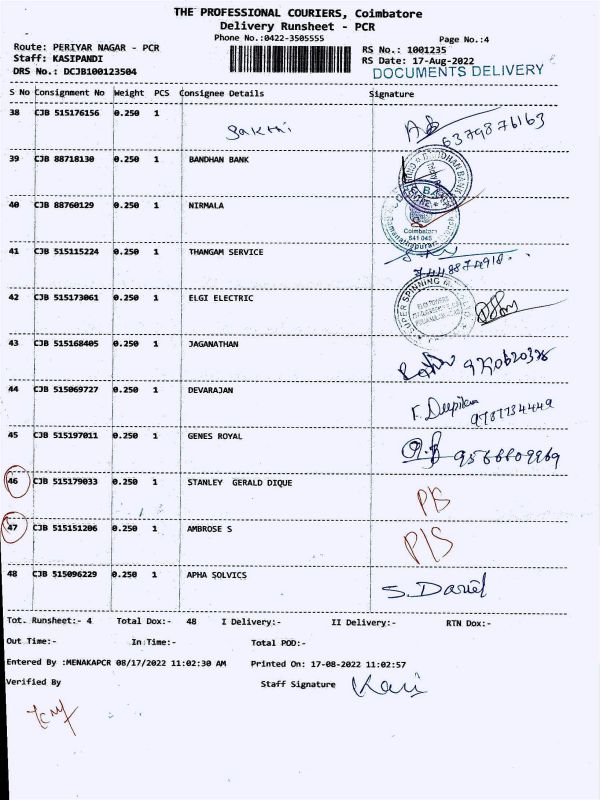 THE PROFESSIONAL COURIERS, Coimbatore
Delivery Runsheet - PCR
Phone No.:0422-3505555
Page No.:4
Route: PERIYAR NAGAR - PCR
RS No.: 1001235
Staff: KASIPANDI
RS Date: 17-Aug-2022
DRS No.: DCJB100123504
DOCUMENTS DELIVERY
S No Consignment No Weight PCS Consignee Details Signature
38 CJB 515176156 0.250 1 Sakthi 6379876163
39 CJB 88718130 0.250 1 BANDHAN BANK
40 CJB 88760129 0.250 1 NIRMALA
Coimbatore
641 045
41 CJB 515115224 0.250 1 THANGAM SERVICE
7448874918
42 CJB 515173061 0.250 1 ELGI ELECTRIC
43 CJB 515168405 0.250 1 JAGANATHAN
44 CJB 515069727 0.250 1 DEVARAJAN Deepika
9787734449
45 CJB 515197011 0.250 1 GENES ROYAL 9566609969
46 CJB 515179033 0.250 1 STANLEY GERALD DIQUE
47 CJB 515151206 0.250 1 AMBROSE S P/S
48 CJB 515096229 0.250 1 APHA SOLVICS S. Daniel
Tot. Runsheet:- 4 Total Dox:- 48 I Delivery:- II Delivery:- RTN Dox:-
Out Time:- In Time:- Total POD:-
Entered By :MENAKAPCR 08/17/2022 11:02:30 AM Printed On: 17-08-2022 11:02:57
Verified By Staff Signature